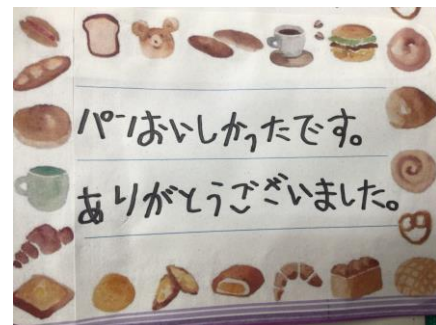 パンおいしかったです。
ありがとうございました。